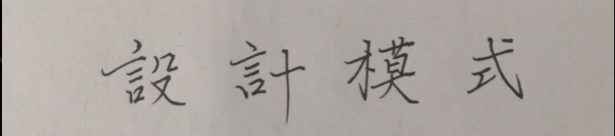 設計模式